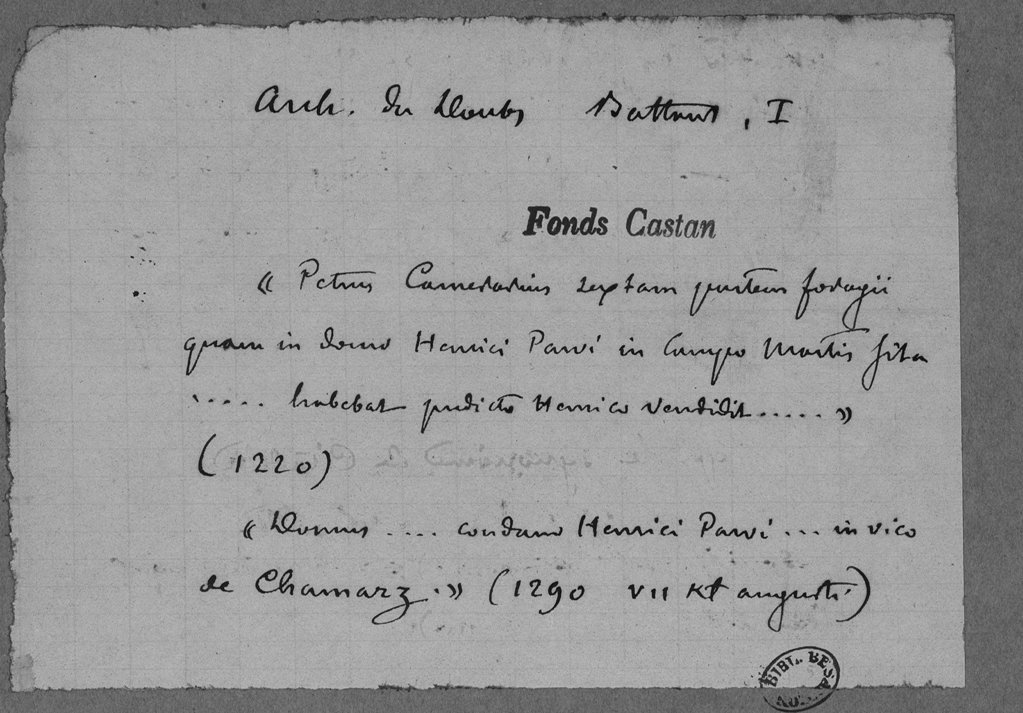 Arch. du Doubs Battant, I
Fonds Castan
« Petrus Camerarius sextam partem foragii
quam in domo Henrici Parvi in Campo Martis sita
..... habebat predicto Henrico vendidit ..... »
(1220)
« Domus .... condam Henrici Parvi ... in vico
de Chamarz .» (1290 VII Kl augusti)
BIBL. BES